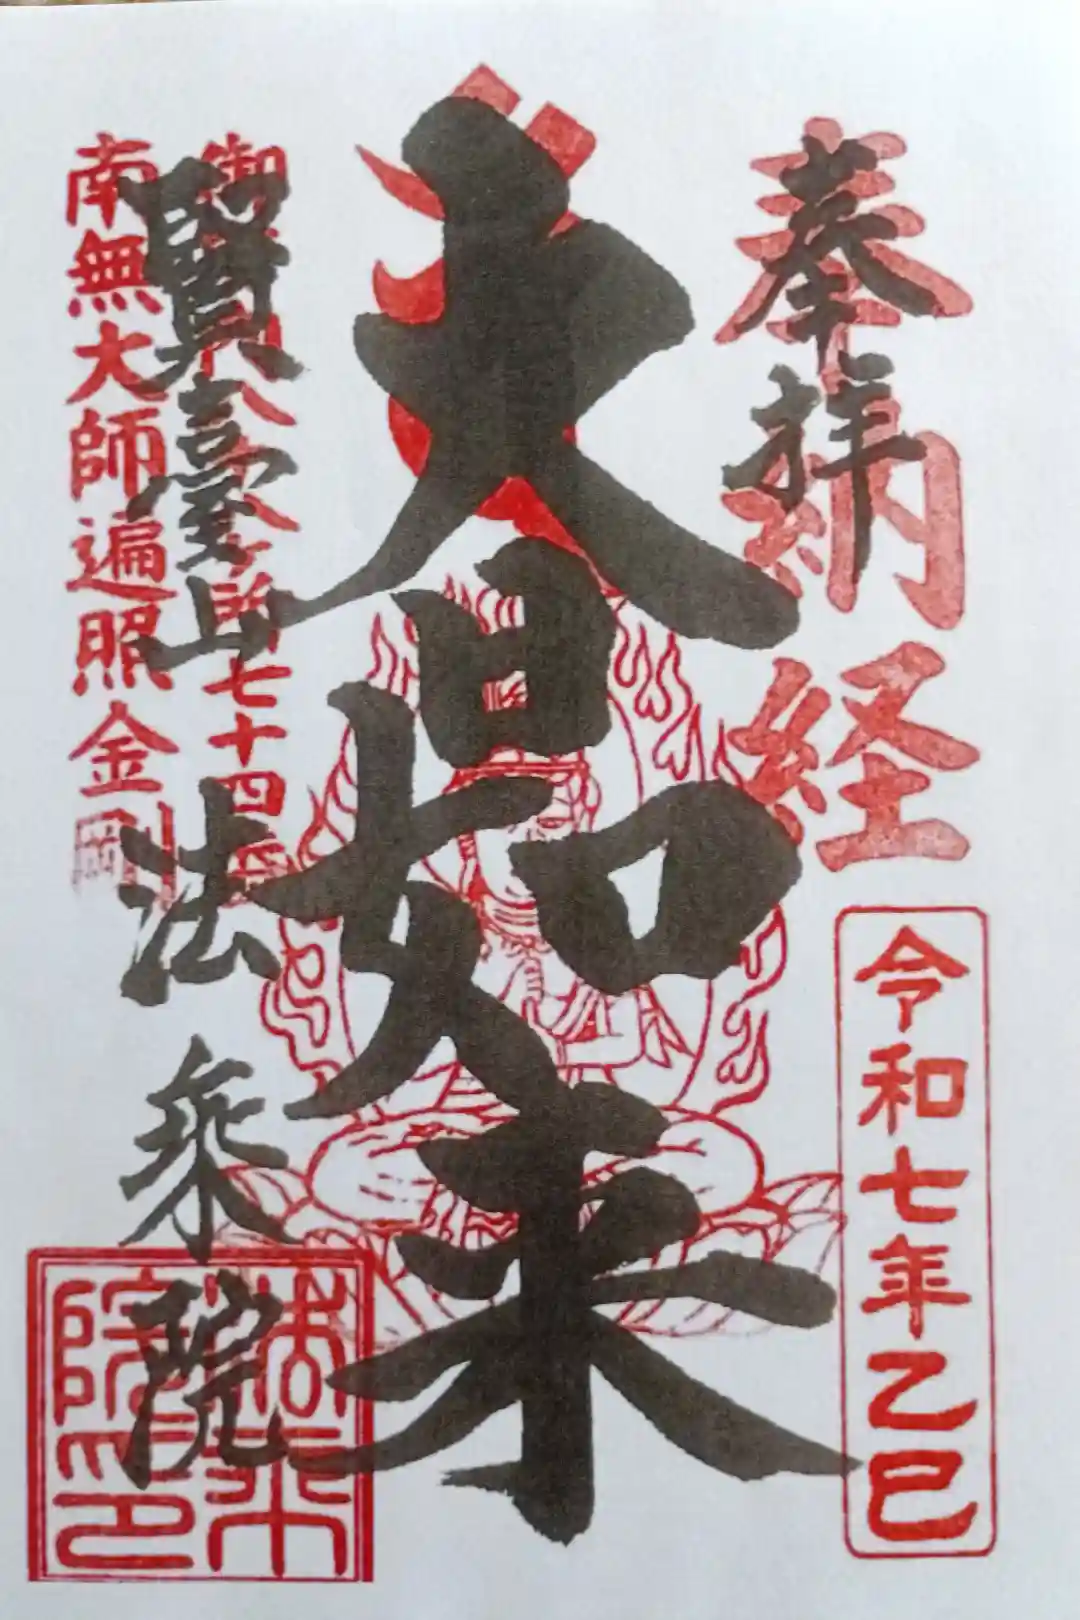 奉拝
奉納経
令和七年乙巳
大日如来
御府内八十八ヶ所七十四番
賢臺山 法乗院
南無大師遍照金剛
法乗院印